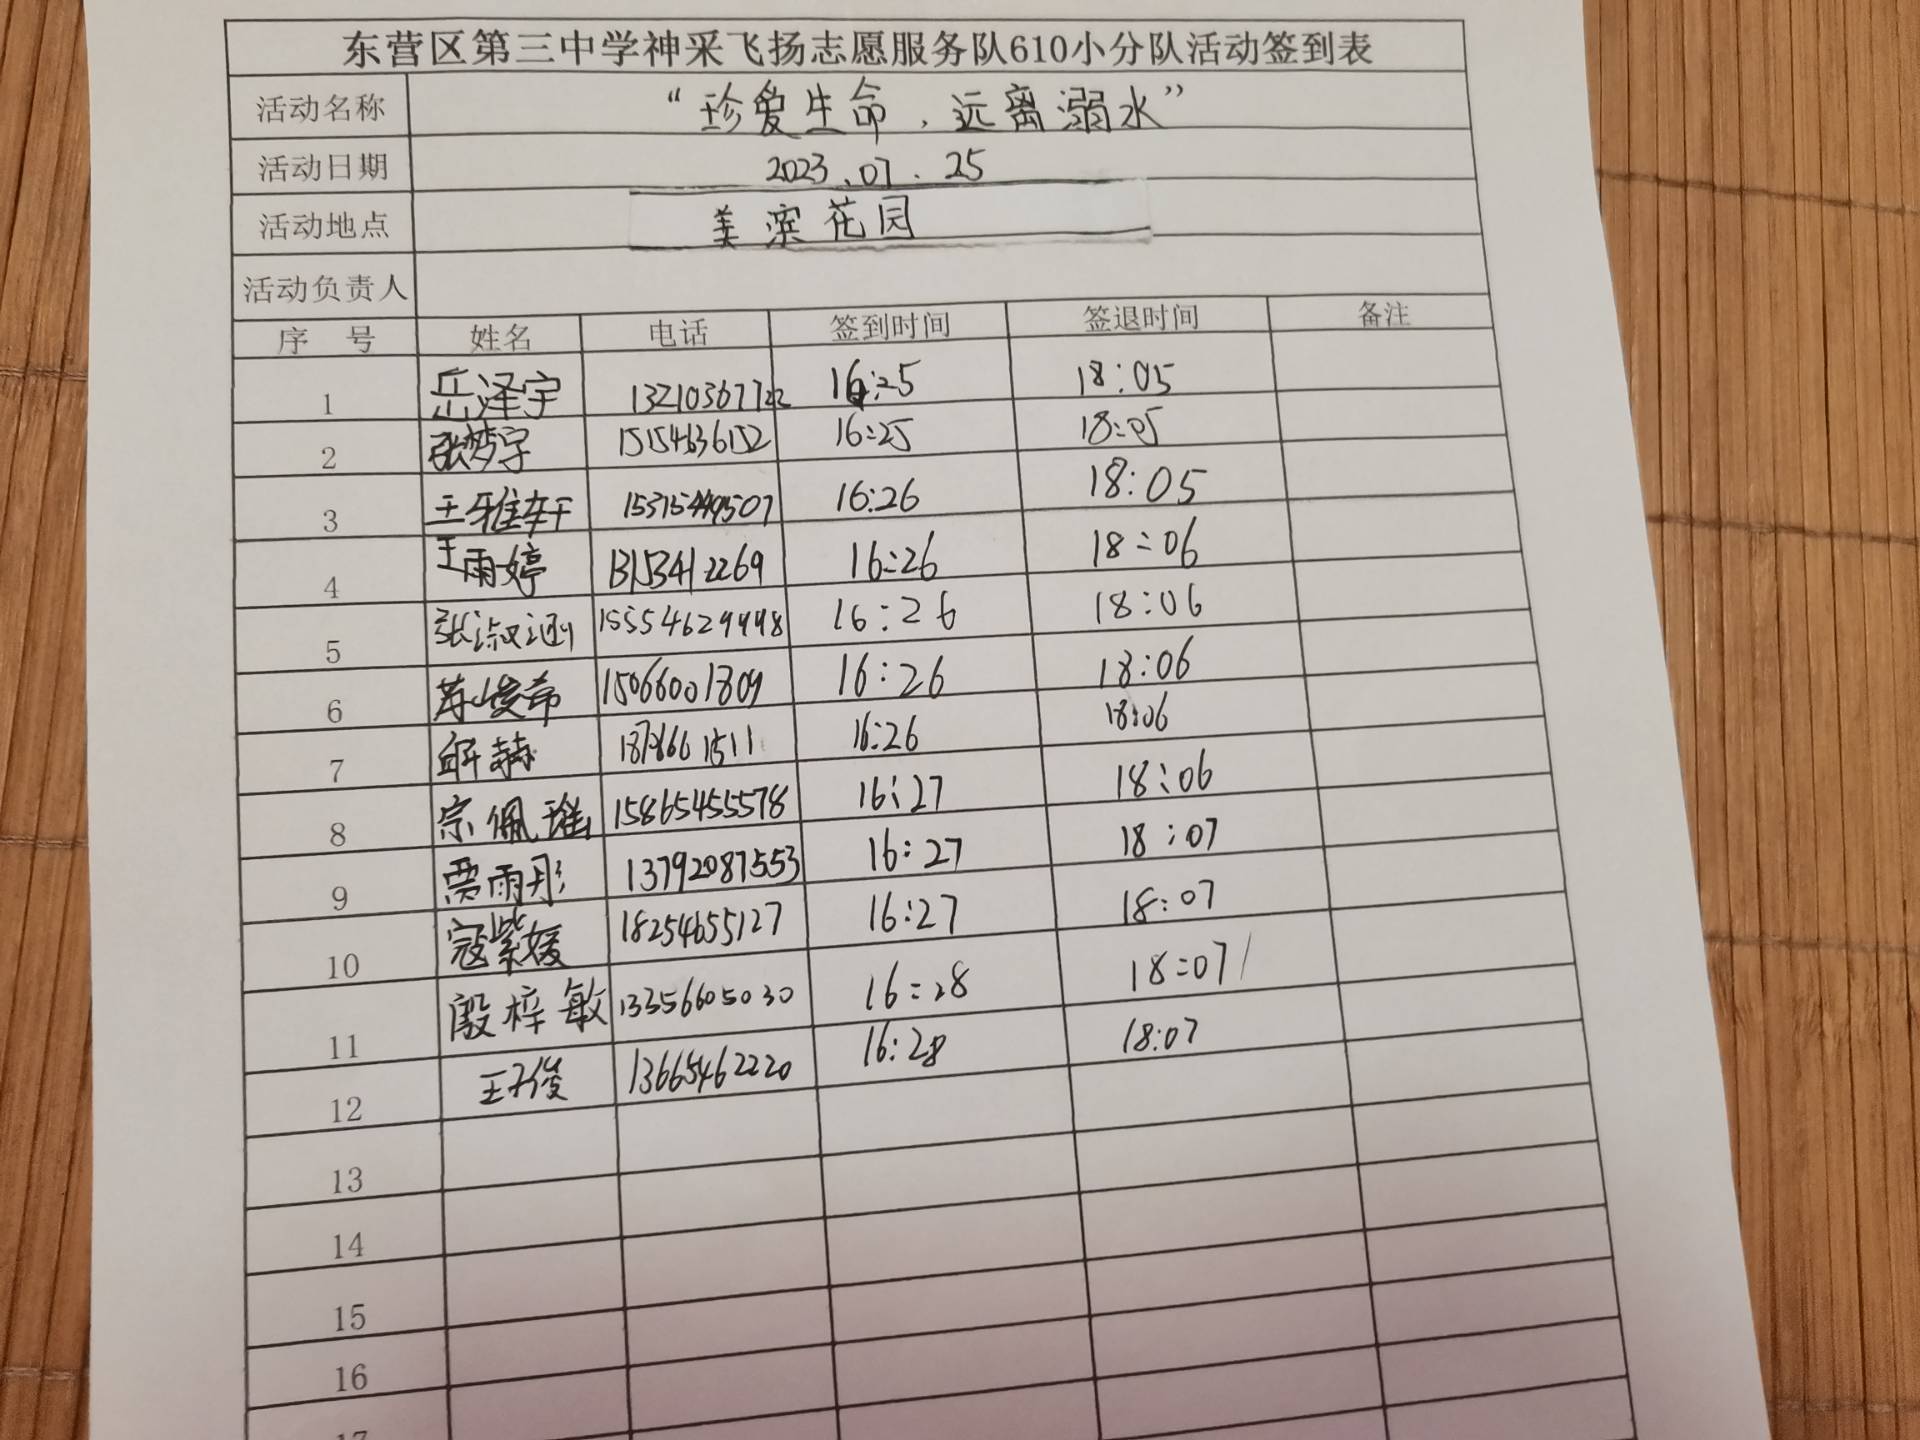 东营区第三中学神采飞扬志愿服务队610小分队活动签到表
活动名称 “珍爱生命，远离溺水”
活动日期 2023.07.25
活动地点 美滨花园
活动负责人
序 号 姓名 电话 签到时间 签退时间 备注
1 岳泽宇 16:25 18:05
2 张梦宇 15154636152 16:25 18:05
3 王雅轩 16:26 18:05
4 王雨婷 13153412269 16:26 18:06
5 张淑涵 16:26 18:06
6 15066001809 16:26 18:06
7 解赫 16:26 18:06
8 宗佩瑶 15865455578 16:27 18:06
9 贾雨彤 13792087553 16:27 18:07
10 寇紫媛 18254655127 16:27 18:07
11 殷梓敏 13356605030 16:28 18:07
12 王子俊 13665462220 16:28 18:07
13
14
15
16
17